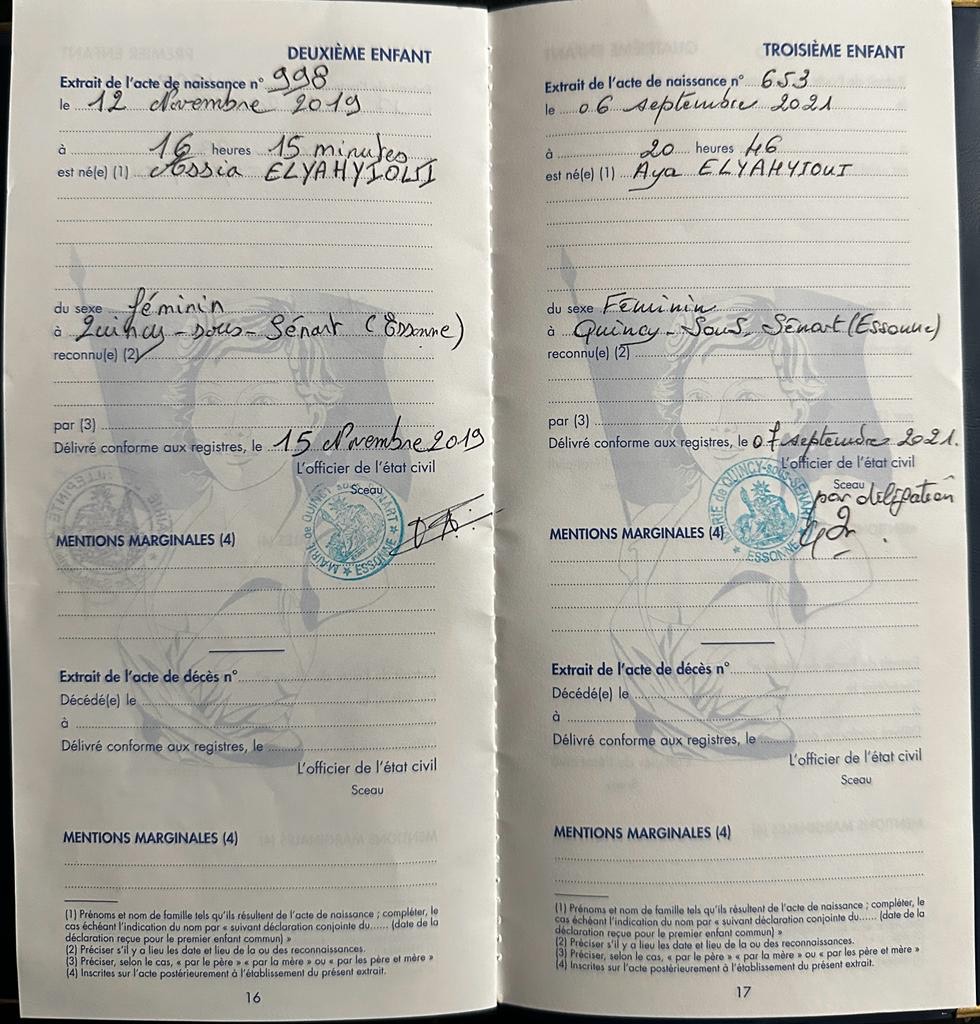 DEUXIÈME ENFANT
Extrait de l'acte de naissance n° 998
le 12 Novembre 2019
à 16 heures 15 minutes
est né(e) (1) Assia ELYAHYIOUI
du sexe féminin
à Quincy-sous-Sénart (Essonne)
reconnu(e) (2)
par (3)
Délivré conforme aux registres, le 15 Novembre 2019
L'officier de l'état civil
Sceau
MAIRIE de QUINCY sous SÉNART
ESSONNE
MENTIONS MARGINALES (4)
Extrait de l'acte de décès n°
Décédé(e) le
à
Délivré conforme aux registres, le
L'officier de l'état civil
Sceau
MENTIONS MARGINALES (4)
(1) Prénoms et nom de famille tels qu'ils résultent de l'acte de naissance ; compléter, le
cas échéant l'indication du nom par « suivant déclaration conjointe du...... (date de la
déclaration reçue pour le premier enfant commun) »
(2) Préciser s'il y a lieu les date et lieu de la ou des reconnaissances.
(3) Préciser, selon le cas, « par le père » « par la mère » ou « par les père et mère »
(4) Inscrites sur l'acte postérieurement à l'établissement du présent extrait.
16
TROISIÈME ENFANT
Extrait de l'acte de naissance n° 653
le 06 septembre 2021
à 20 heures 46
est né(e) (1) Aya ELYAHYIOUI
du sexe Féminin
à Quincy-Sous-Sénart (Essonne)
reconnu(e) (2)
par (3)
Délivré conforme aux registres, le 07 septembre 2021.
L'officier de l'état civil
Sceau
par délégation
MAIRIE de QUINCY-sous-SÉNART
ESSONNE
MENTIONS MARGINALES (4)
Extrait de l'acte de décès n°
Décédé(e) le
à
Délivré conforme aux registres, le
L'officier de l'état civil
Sceau
MENTIONS MARGINALES (4)
(1) Prénoms et nom de famille tels qu'ils résultent de l'acte de naissance ; compléter, le
cas échéant l'indication du nom par « suivant déclaration conjointe du...... (date de la
déclaration reçue pour le premier enfant commun) »
(2) Préciser s'il y a lieu les date et lieu de la ou des reconnaissances.
(3) Préciser, selon le cas, « par le père » « par la mère » ou « par les père et mère »
(4) Inscrites sur l'acte postérieurement à l'établissement du présent extrait.
17